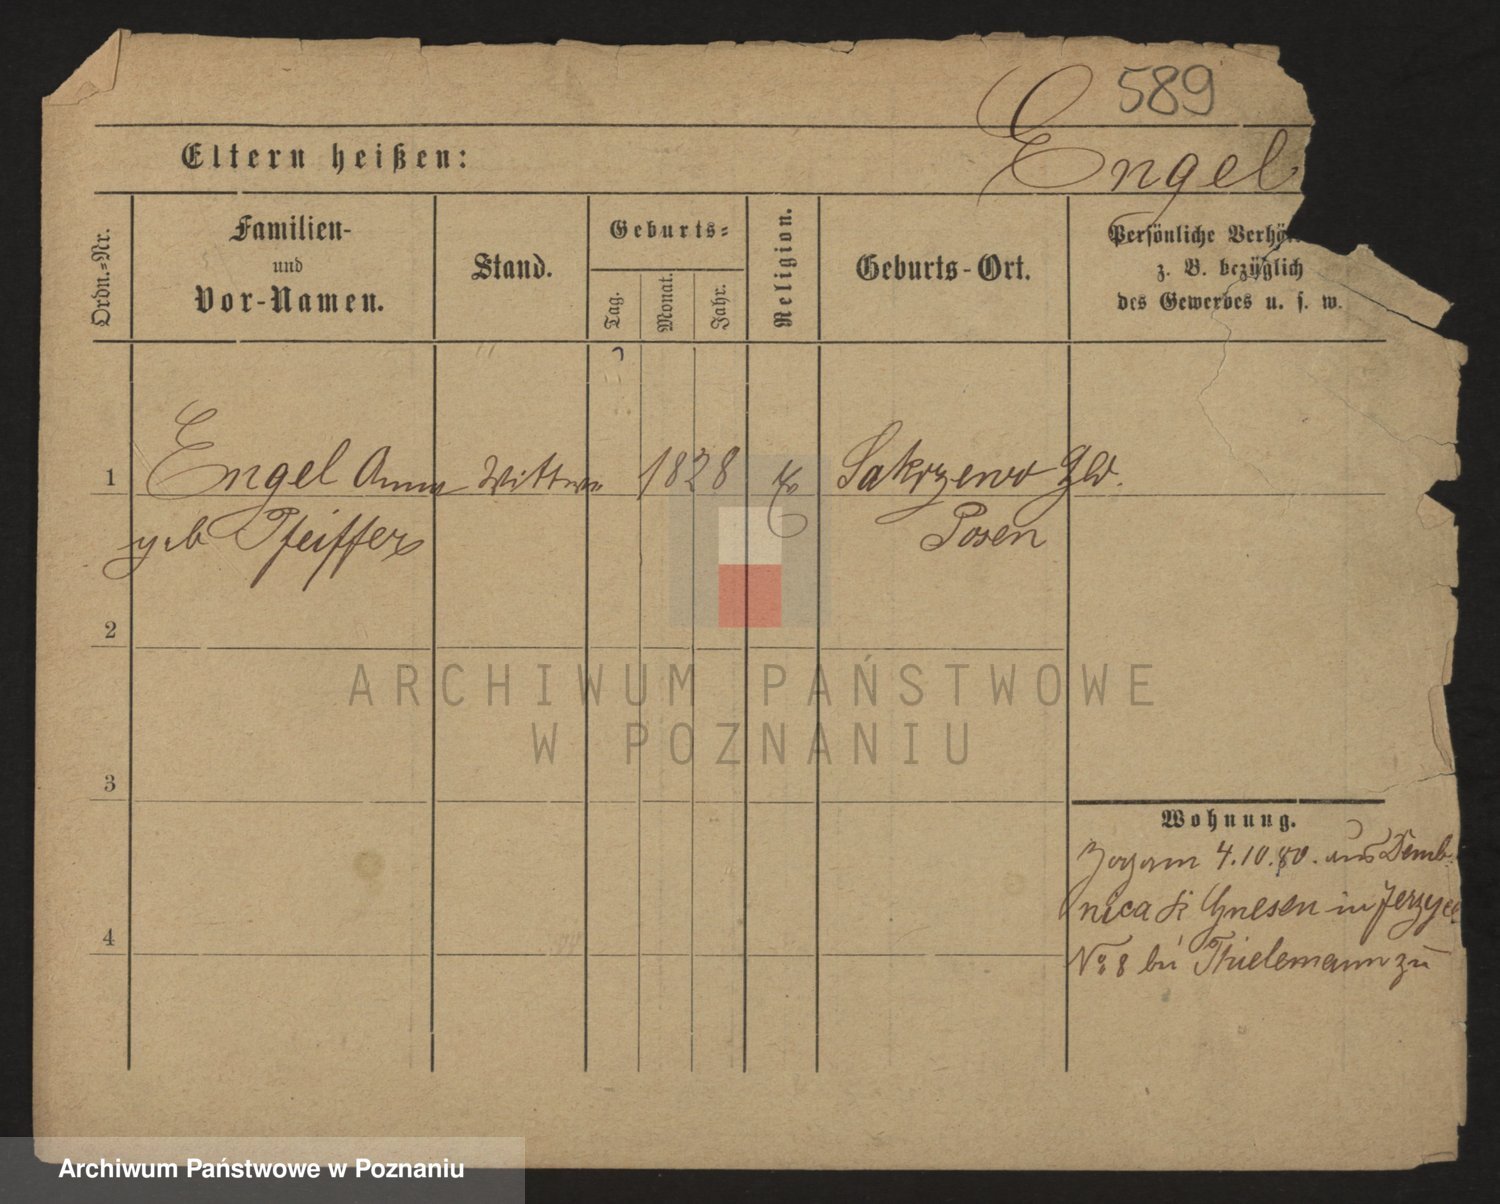 589
Engel
Eltern heißen:
Ordn.-Nr.
Familien-
und
Vor-Namen.
Stand.
Geburts-
Tag.
Monat.
Jahr.
Religion.
Geburts-Ort.
Persönliche Verhä
z. B. bezüglich
des Gewerbes u. s. w.
1
Engel Anna Wittwe 1828 Ev Sakrzewo Hld.
geb Pfeiffer Posen
2
3
4
Wohnung.
Zogam 4.10.80. aus Demb-
nica K Gnesen in Jerzyce
No 8 bei Thielemann zu
ARCHIWUM PAŃSTWOWE
W POZNANIU
Archiwum Państwowe w Poznaniu